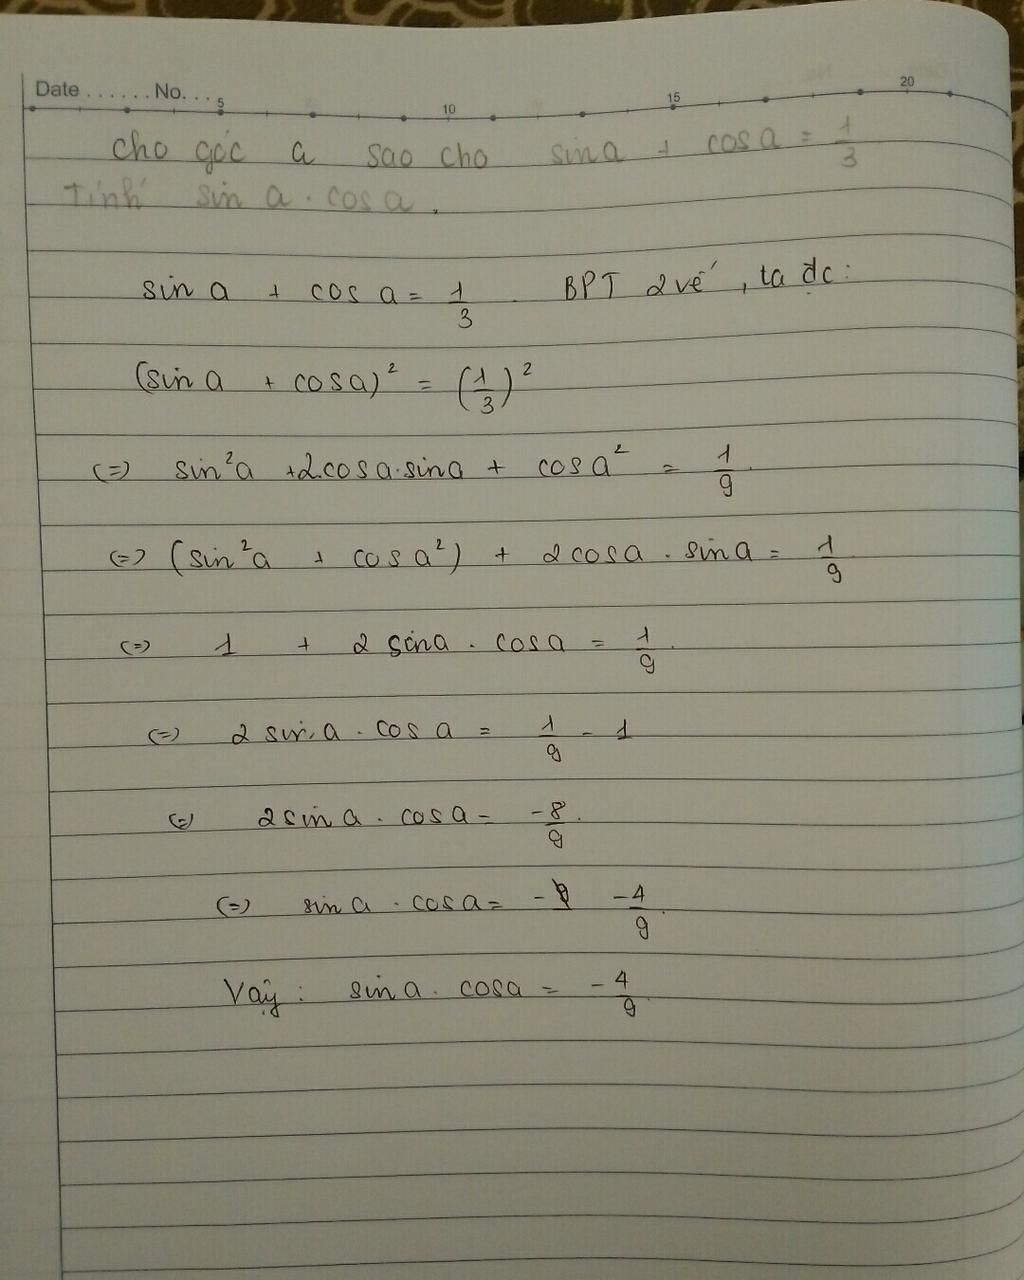 Date ...... No....
5 10 15 20
Cho góc a sao cho sin a + cos a = 1/3
Tính sin a . cos a .
sin a + cos a = 1/3 . BPT 2 vế , ta đc :
(sin a + cos a)² = (1/3)²
(=) sin²a + 2.cos a.sin a + cos a² = 1/9 .
(=) (sin²a + cos a²) + 2 cos a . sin a = 1/9 .
(=) 1 + 2 sin a . cos a = 1/9 .
(=) 2 sin a . cos a = 1/9 - 1
(=) 2 sin a . cos a = -8/9 .
(=) sin a . cos a = - -4/9 .
Vậy : sin a . cos a = -4/9 .